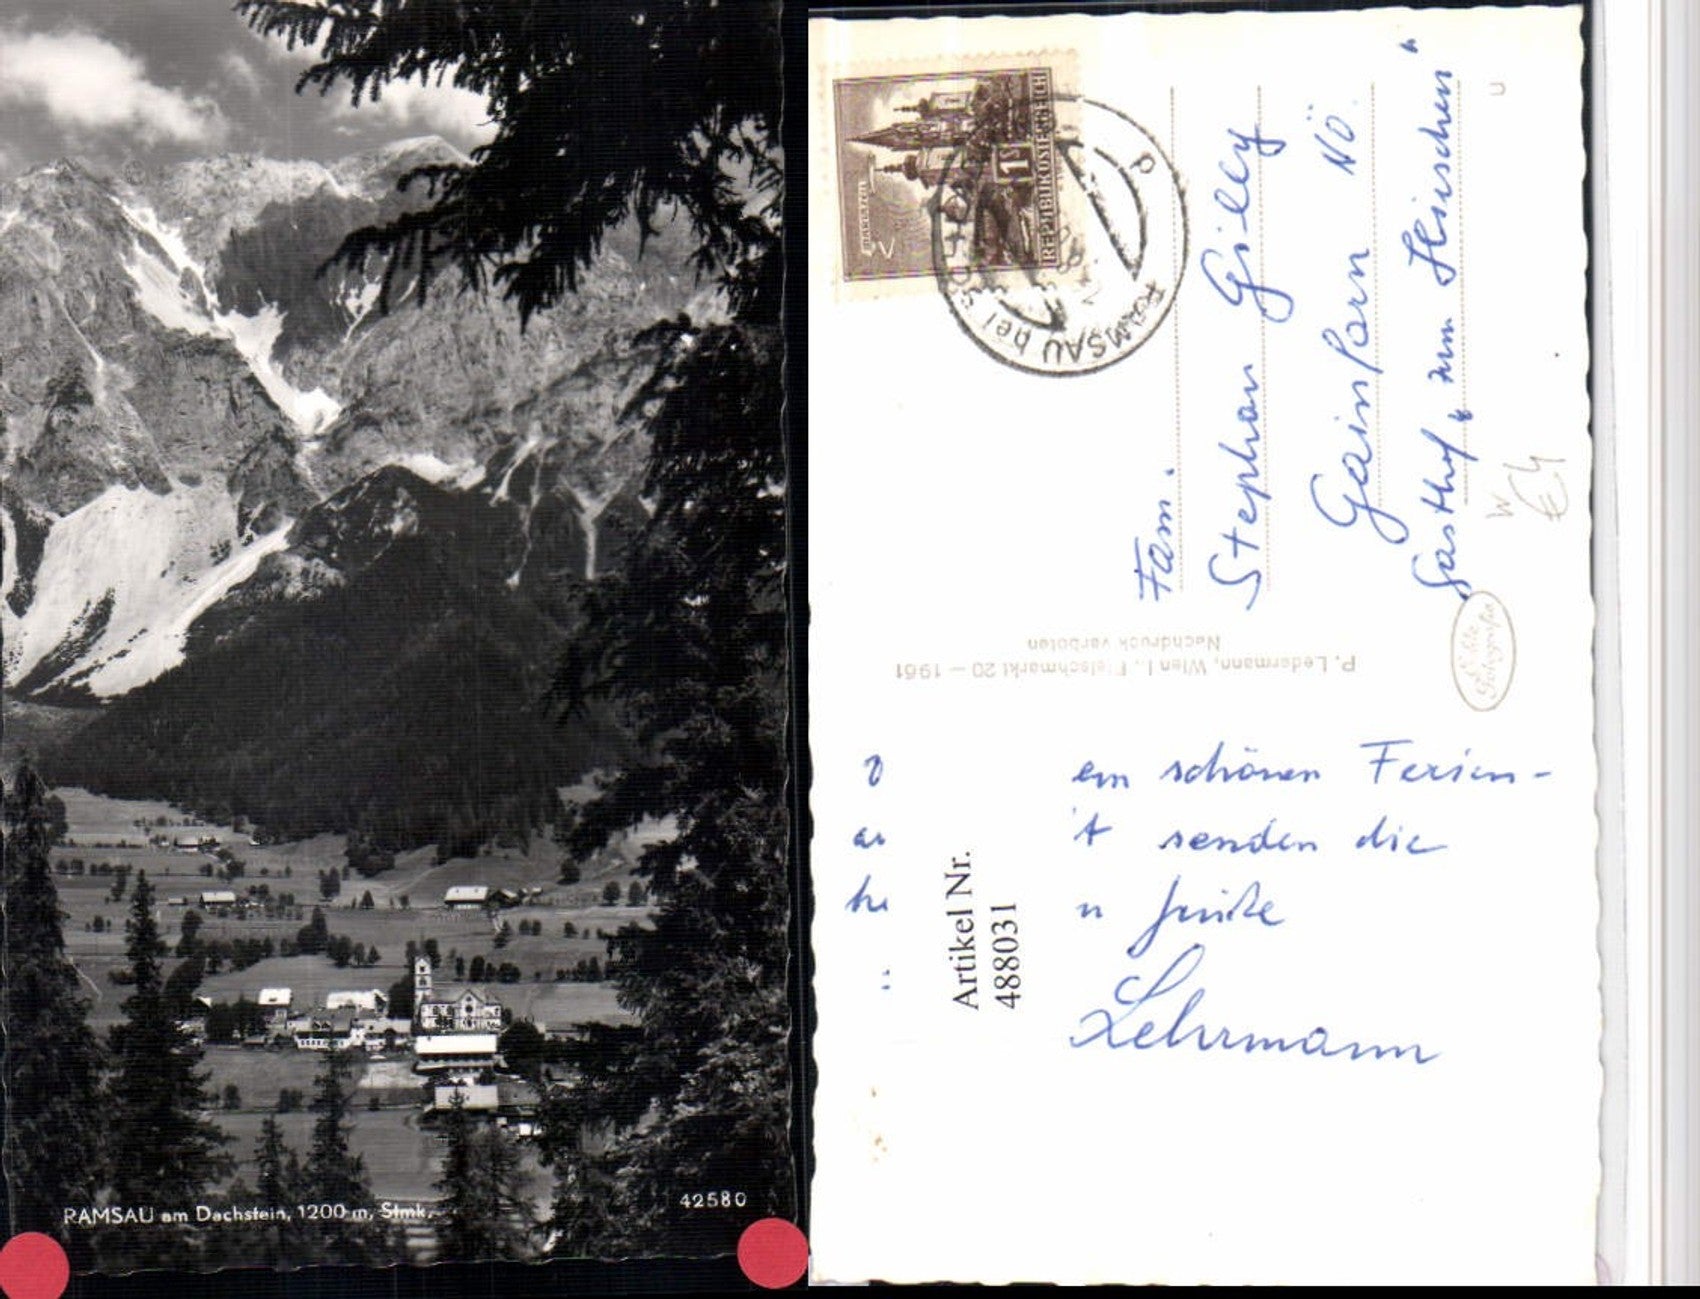 RAMSAU am Dachstein, 1200 m, Stmk.
42580
MARIAZELL
1S
REPUBLIK ÖSTERREICH
RAMSAU bei
Fam.
Stephan Gilly
Gainfarn NÖ.
Gasthof "zum Hirschen"
P. Ledermann, Wien I., Fleischmarkt 20 – 1961
Nachdruck verboten
Echte
Fotografie
em schönen Ferien-
senden die
Lehrmann
Artikel Nr.
488031
W
€4